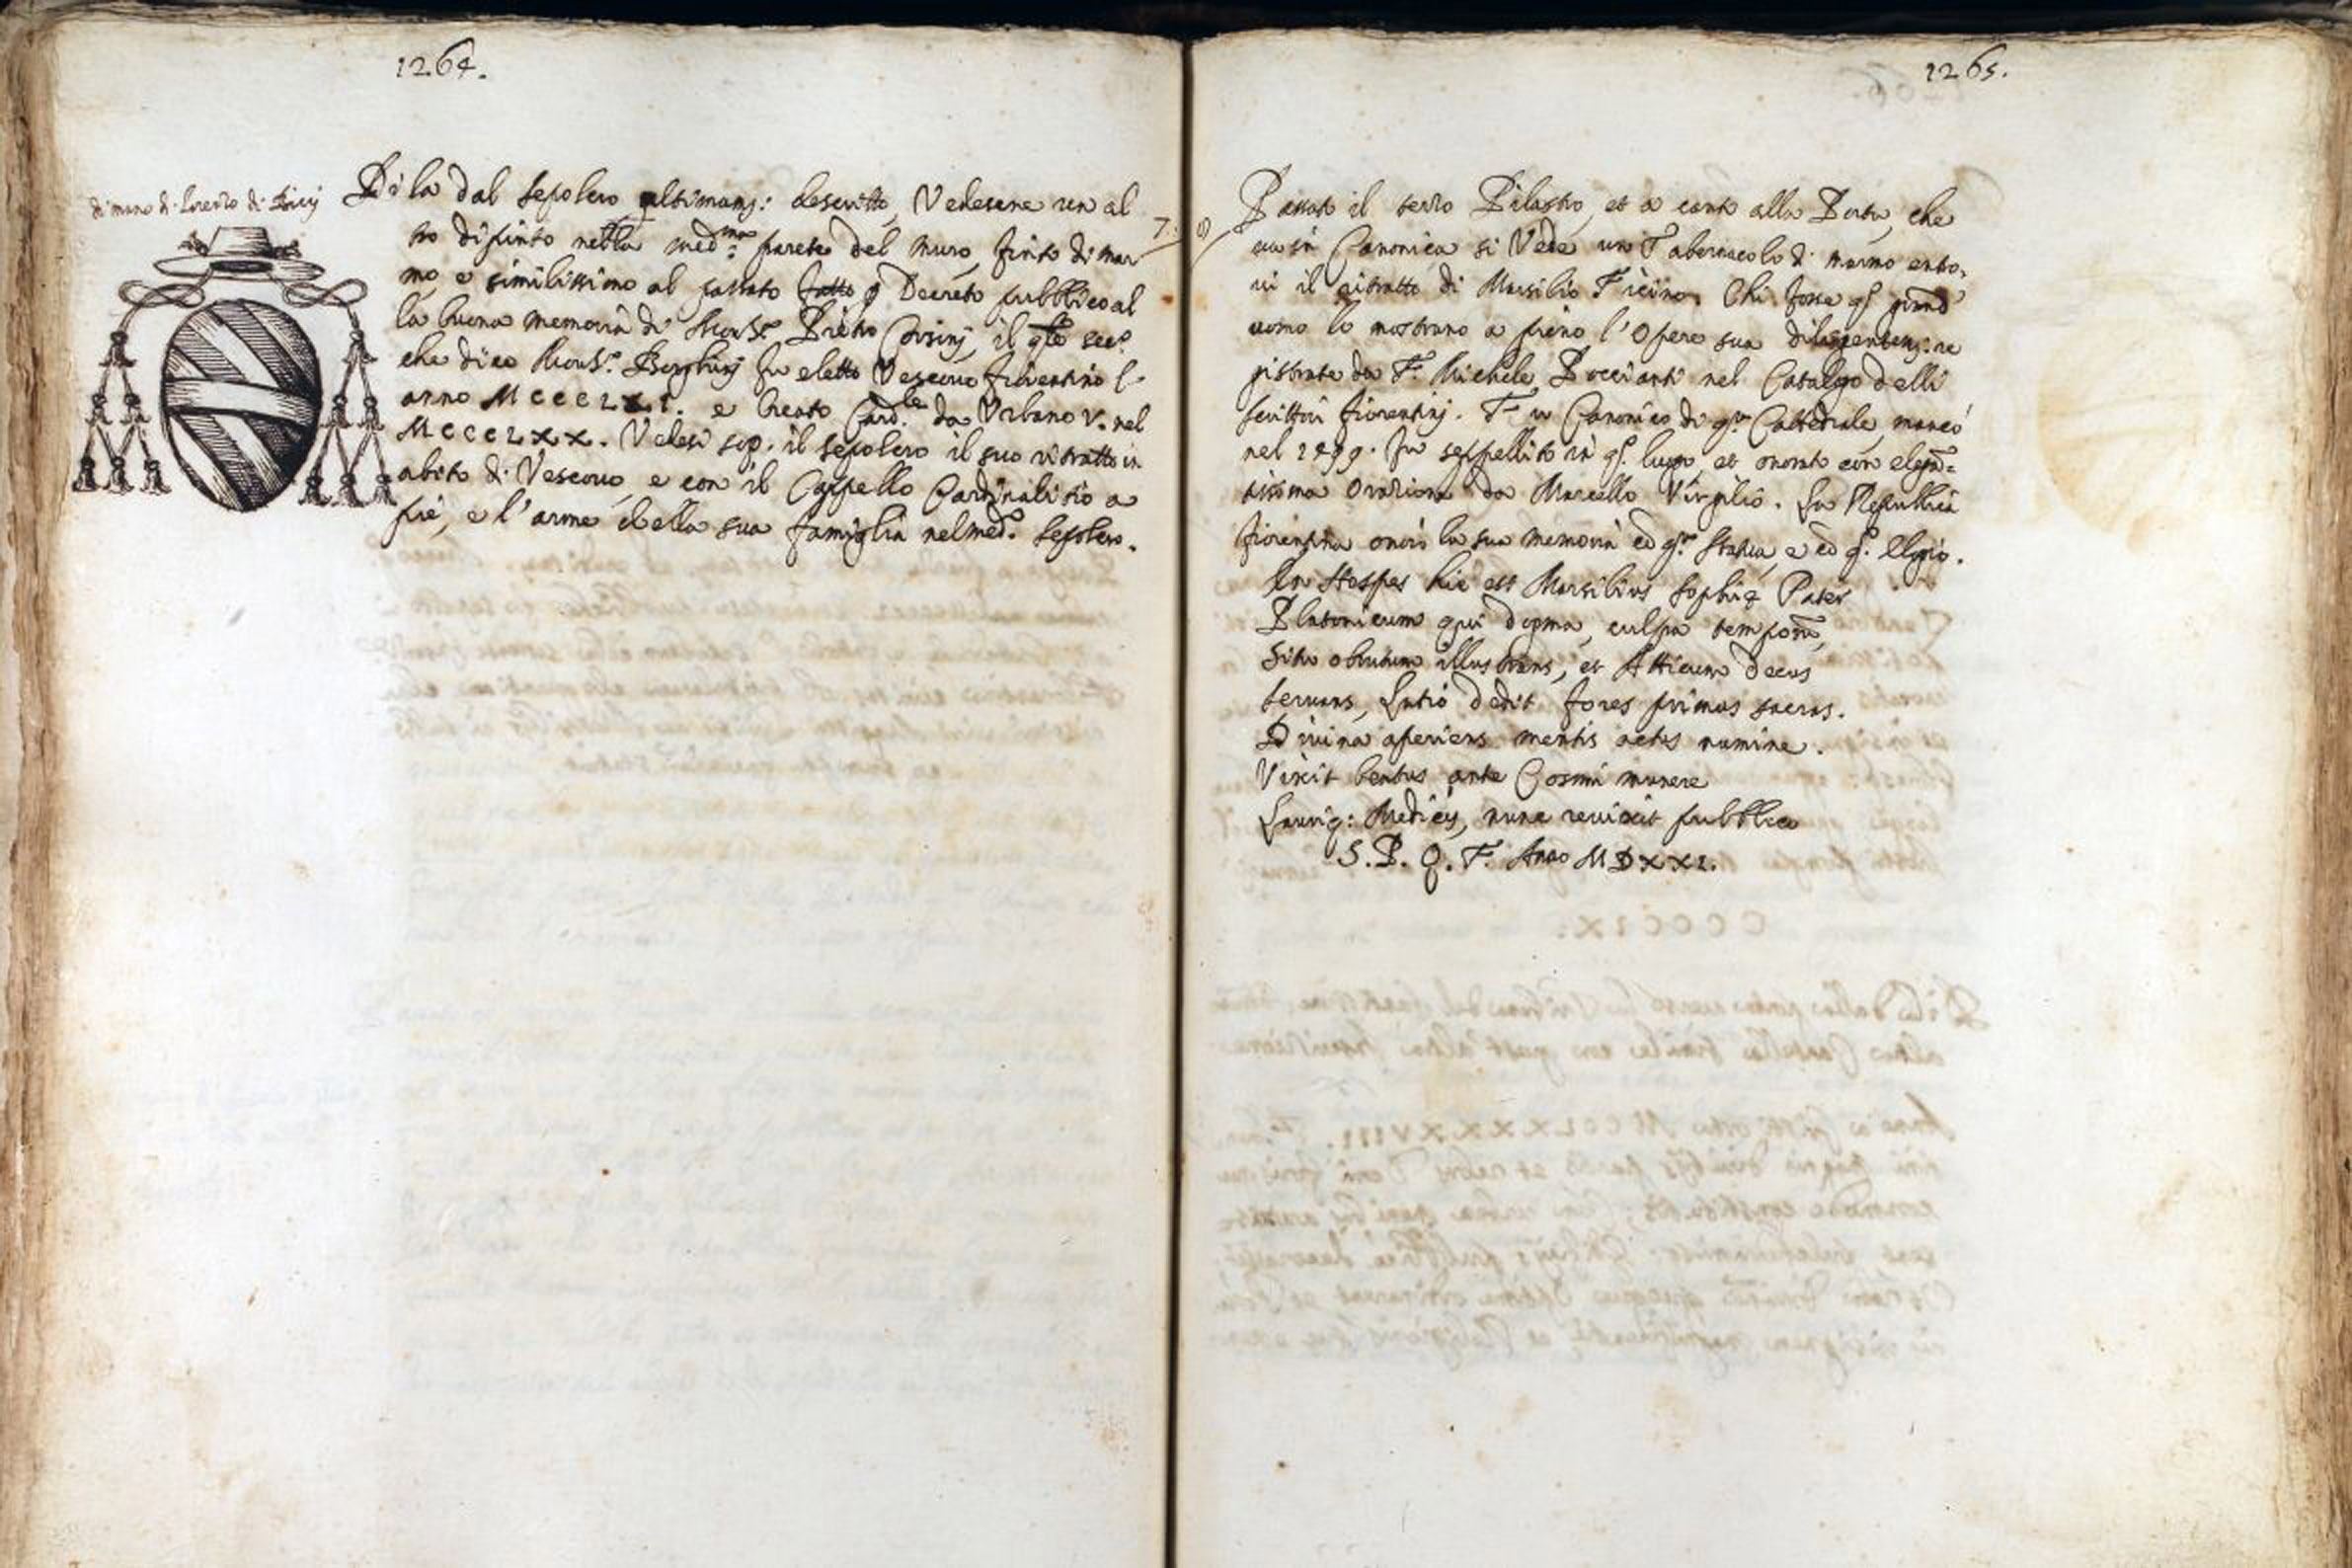 1264.
di mano di Lorenzo di Bicij
Di la dal sepolcro ultimamj: descritto, Vedesene un al
tro dipinto nella med.ma parete del muro, finto di mar
mo, e similissimo al passato fatto p Decreto pubblico al
la buona memoria di Mons.r Pietro Corsinj, il qle sec.o
che dice Mons.r Borghinj fu eletto Vescovo fiorentino l'
anno MCCCLXI. e creato Card.le da Urbano V. nel
MCCCLXX. Vedesi sop. il sepolcro il suo ritratto in
abito di Vescovo, e con il Cappello Cardinalitio a
pie, e l'arme della sua famiglia nel med.o sepolcro.
7.
1265.
8
Passato il terzo Pilastro, et a canto alla Porta, che
va in Canonica si Vede un Tabernacolo di marmo entro,
vi il ritratto di Marsilio Ficino. Chi fosse qs. grand'
uomo lo mostrano a pieno l'Opere sua diligentemj: re
gistrate da F. Michele Poccianti nel Catalgo delli
scrittori fiorentinj. Fu Canonico di qs.a Cattedrale, mancò
nel 1499. fu seppellito in qs. lugo, et onorato con elega=
tissima Orazione da Marcello Virgilio. La Republica
fiorentina onorò la sua memoria cō qs.a Statua, e cō qs.o Elogio.
En Hospes hic est Marsilius Sophię Pater
Platonicum qui dogma, culpa temporū,
Situ obrutum illustrans, et Atticum decus
servans, Latio dedit fores primus sacras.
Divina aperiens mentis actus numine.
Vixit beatus ante Cosmi munere
Lauriq: Medicis, nunc revixit pubblico
S. P. Q. F. Anno MDXXI.